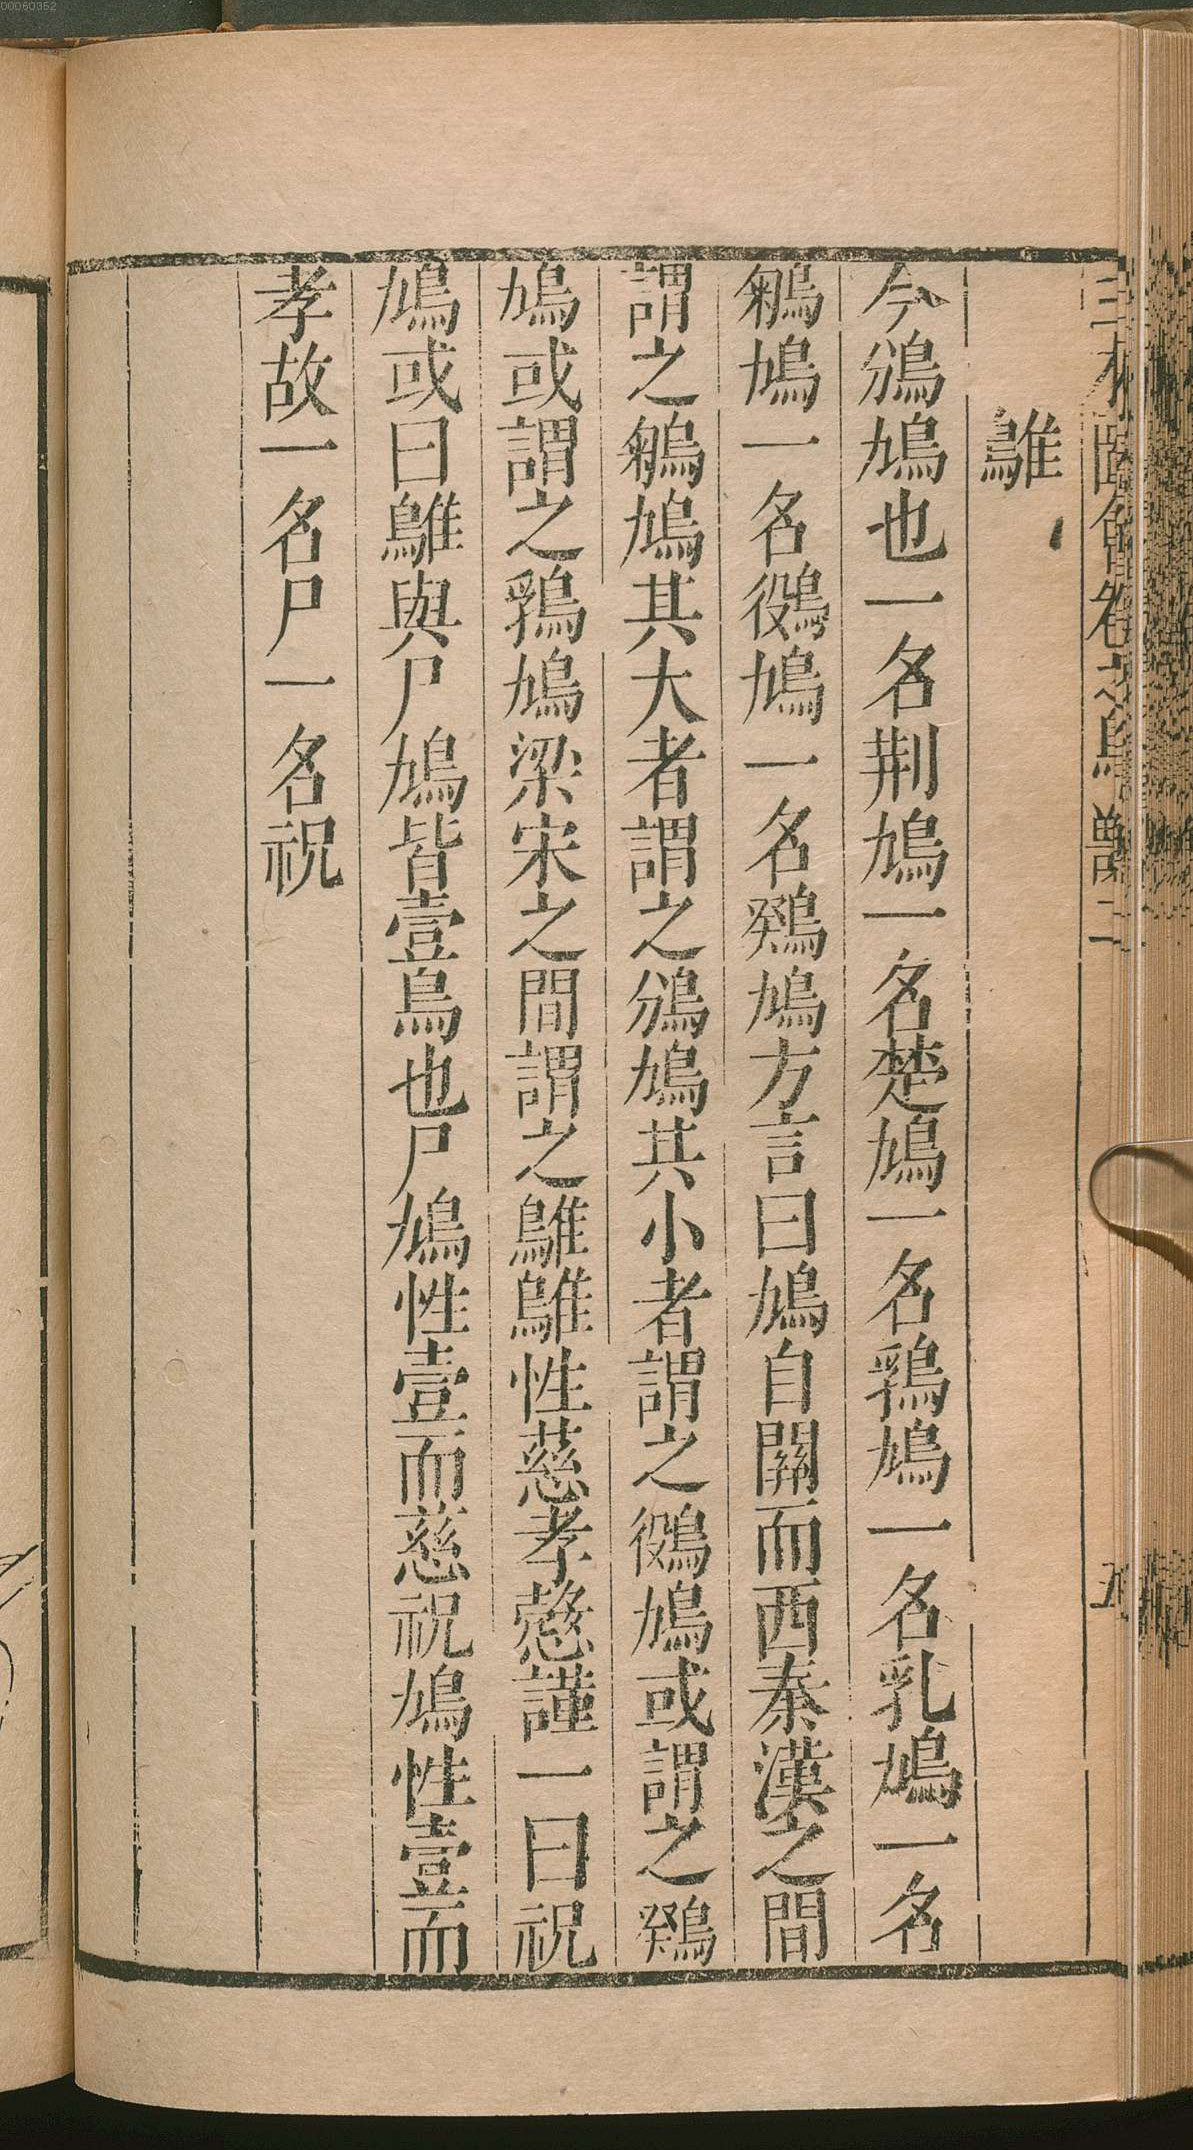 三才圖會卷之鳥獸二　五
鵻
今鳻鳩也一名荆鳩一名楚鳩一名䳕鳩一名乳鳩一名
鵴鳩一名鳩一名鳩方言曰鳩自關而西秦漢之間
謂之鵴鳩其大者謂之鳻鳩其小者謂之鳩或謂之
鳩或謂之䳕鳩梁宋之間謂之鵻鵻性慈孝慤謹一曰祝
鳩或曰鵻與尸鳩皆壹鳥也尸鳩性壹而慈祝鳩性壹而
孝故一名尸一名祝